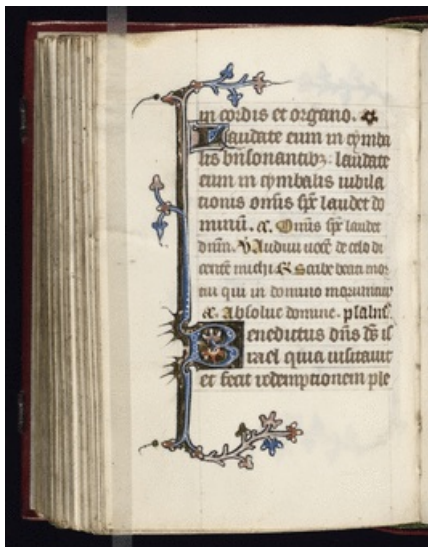 in cordis et organo.
Laudate eum in cymba
lis bñsonantibꝫ: laudate
eum in cymbalis iubila
tionis om̄is sp̄c laudet do
minū. a. Om̄is sp̄c laudet
dn̄m. V Audiui uocē de celo di
centē michi R Scribe beati mor
tui qui in domino moriuntur
a. Absolue domine. psalm̄
Benedictus dn̄s ds̄ is
rael quia uisitauit
et fecit redemptionem ple